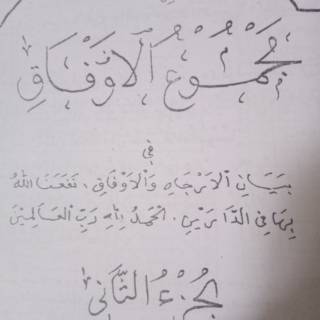 مُجْمُوعُ ٱلْاَوْفَاقِ
فِي
بَيَانِ الْاَرْجَاهِ وَالْاَوْفَاقِ . نَفَعَنَا اللهُ
بِهَا فِي الدَّارَيْنِ . اَلْحَمْدُ لِلّٰهِ رَبِّ الْعَالَمِيْنَ
جُزْءُ الثَّانِي